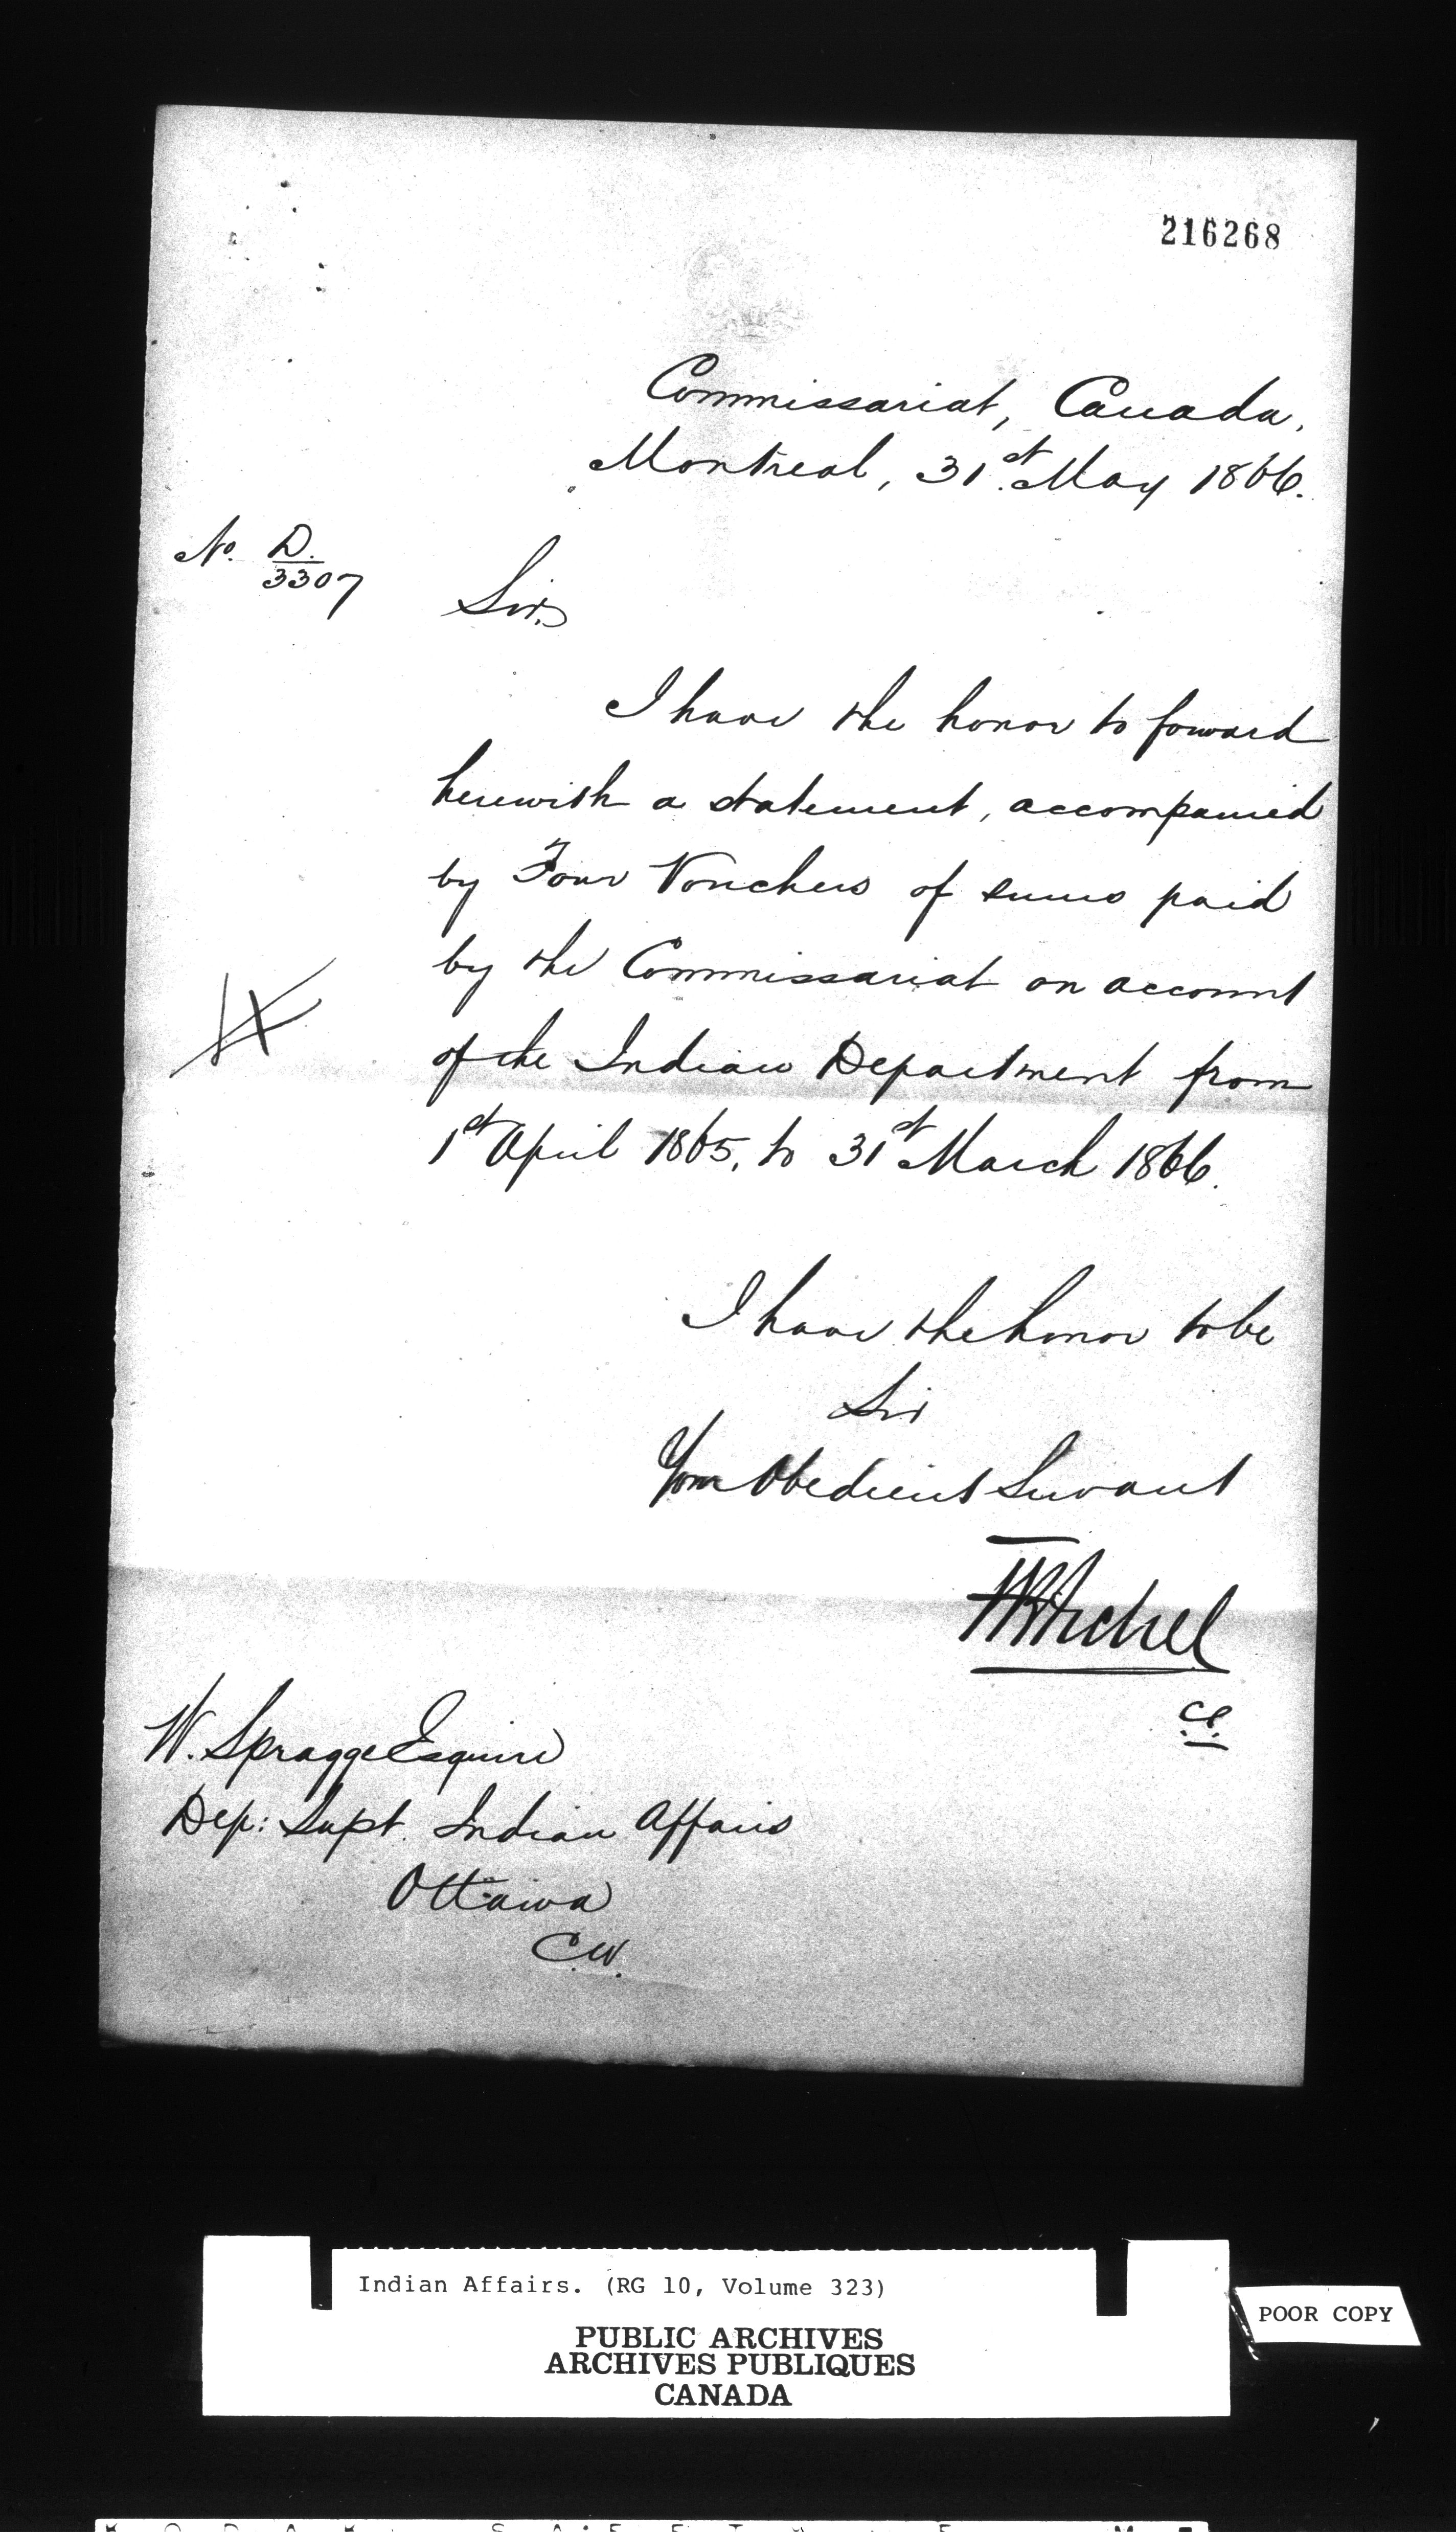 216268
Commissariat, Canada,
Montreal, 31st May 1866.
No. D.
3307
Sir,
I have the honor to forward
herewith a statement, accompanied
by Four Vouchers of sums paid
by the Commissariat on account
of the Indian Department from
1st April 1865, to 31st March 1866.
I have the honor to be
Sir
Your Obedient Servant
W. Spragge Esquire
Dep: Supt. Indian Affairs
Ottawa
C.W.
Indian Affairs. (RG 10, Volume 323)
POOR COPY
PUBLIC ARCHIVES
ARCHIVES PUBLIQUES
CANADA